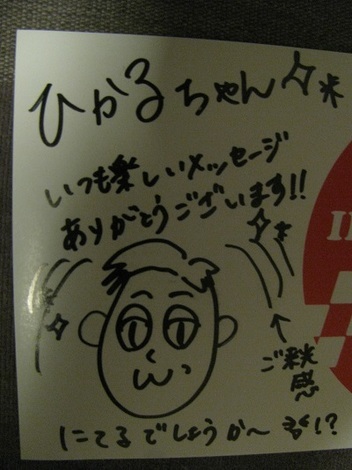 ひかるちゃん
いつも楽しいメッセージ
ありがとうございます!!
I
ご来光
感
にてるでしょうか〜